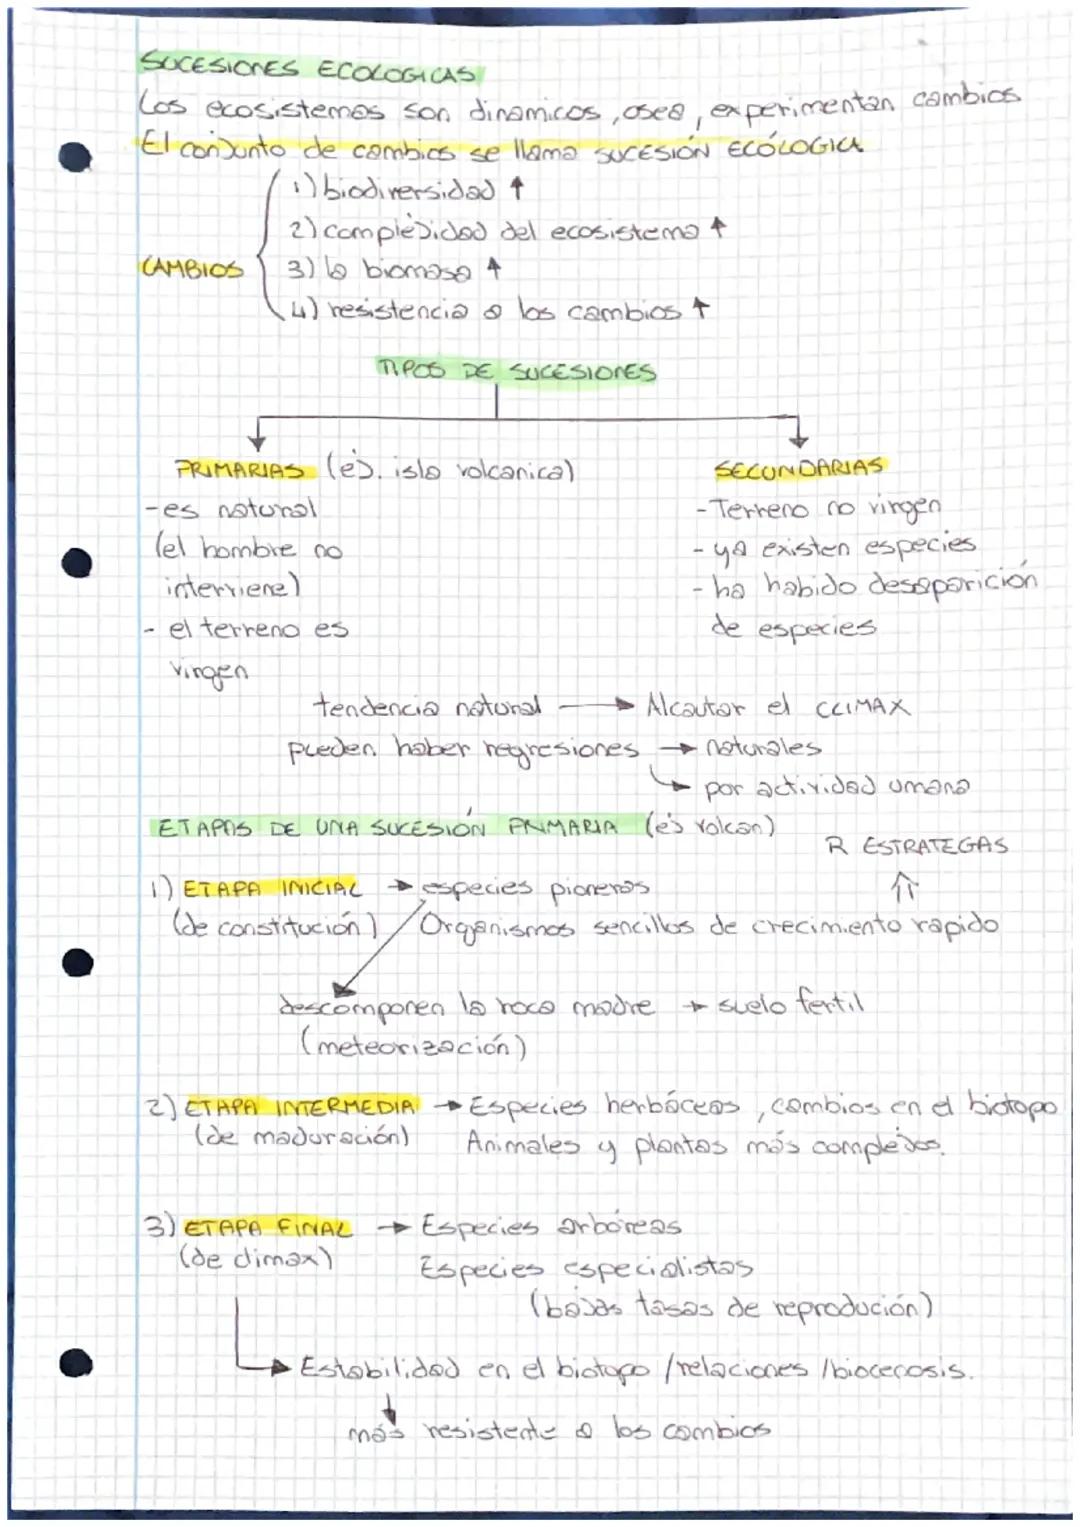 SUCESIONES ECOLOGICAS
Los ecosistemas son dinamicos, osea, experimentan cambios
El conjunto de cambios se llama SUCESIÓN ECÓLOGICA
CAMBIOS
1) biodiversidad ↑
2) complejidad del ecosistema ↑
3) la biomasa ↑
4) resistencia a los cambios ↑
TIPOS DE SUCESIONES
PRIMARIAS (ej. isla volcanica)
- es natural
(el hombre no
interviene)
- el terreno es
virgen
SECUNDARIAS
- Terreno no virgen
- ya existen especies
- ha habido desaparición
de especies
tendencia natural → Alcautar el CLIMAX
pueden haber regresiones → naturales
↳ por actividad umana
ETAPAS DE UNA SUCESIÓN PRIMARIA (ej volcan)
R ESTRATEGAS
⇑
1) ETAPA INICIAL → especies pioneras
(de constitución) Organismos sencillos de crecimiento rapido
descomponen la roca madre → suelo fertil
(meteorización)
2) ETAPA INTERMEDIA → Especies herbáceas, cambios en el biotopo
(de maduración) Animales y plantas más complejos.
3) ETAPA FINAL → Especies arbóreas
(de climax) Especies especialistas
(bajas tasas de reprodución)
→ Estabilidad en el biotopo /relaciones /biocenosis.
↓
más resistente a los cambios